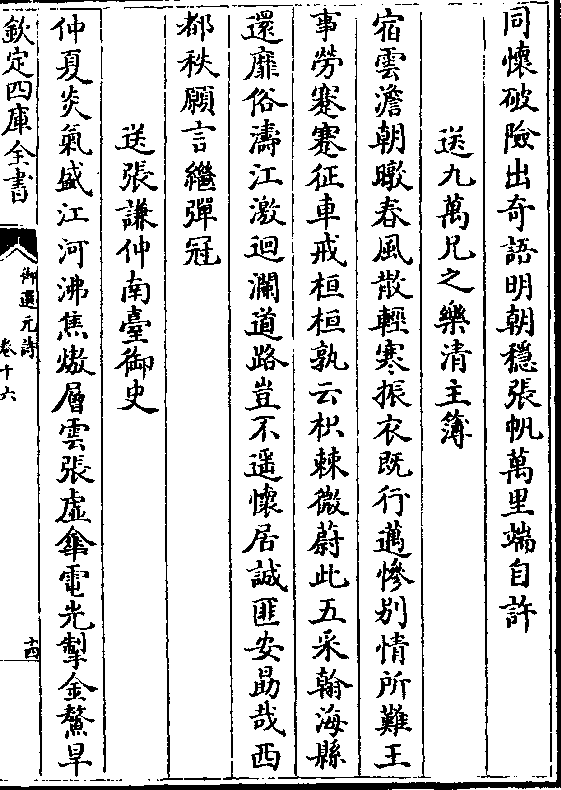 同懷破險出奇語明朝穩張帆萬里端自許
送九萬兄之樂清主簿
宿雲澹朝暾春風散輕寒振衣既行邁慘別情所難王
事勞蹇蹇征車戒桓桓孰云枳棘微蔚此五采翰海縣
還靡俗濤江激迴瀾道路豈不遥懷居誠匪安勗哉西
都秩願言繼彈冠
送張謙仲南臺御史
仲夏炎氣盛江河沸焦熬層雲張虛傘電光掣金鰲早
欽定四庫全書
御選元詩
卷十六
十四